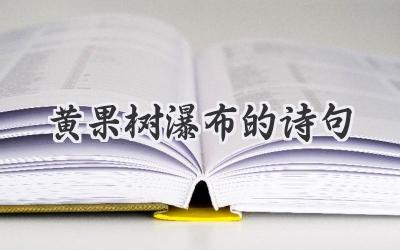 黄果树瀑布的诗句